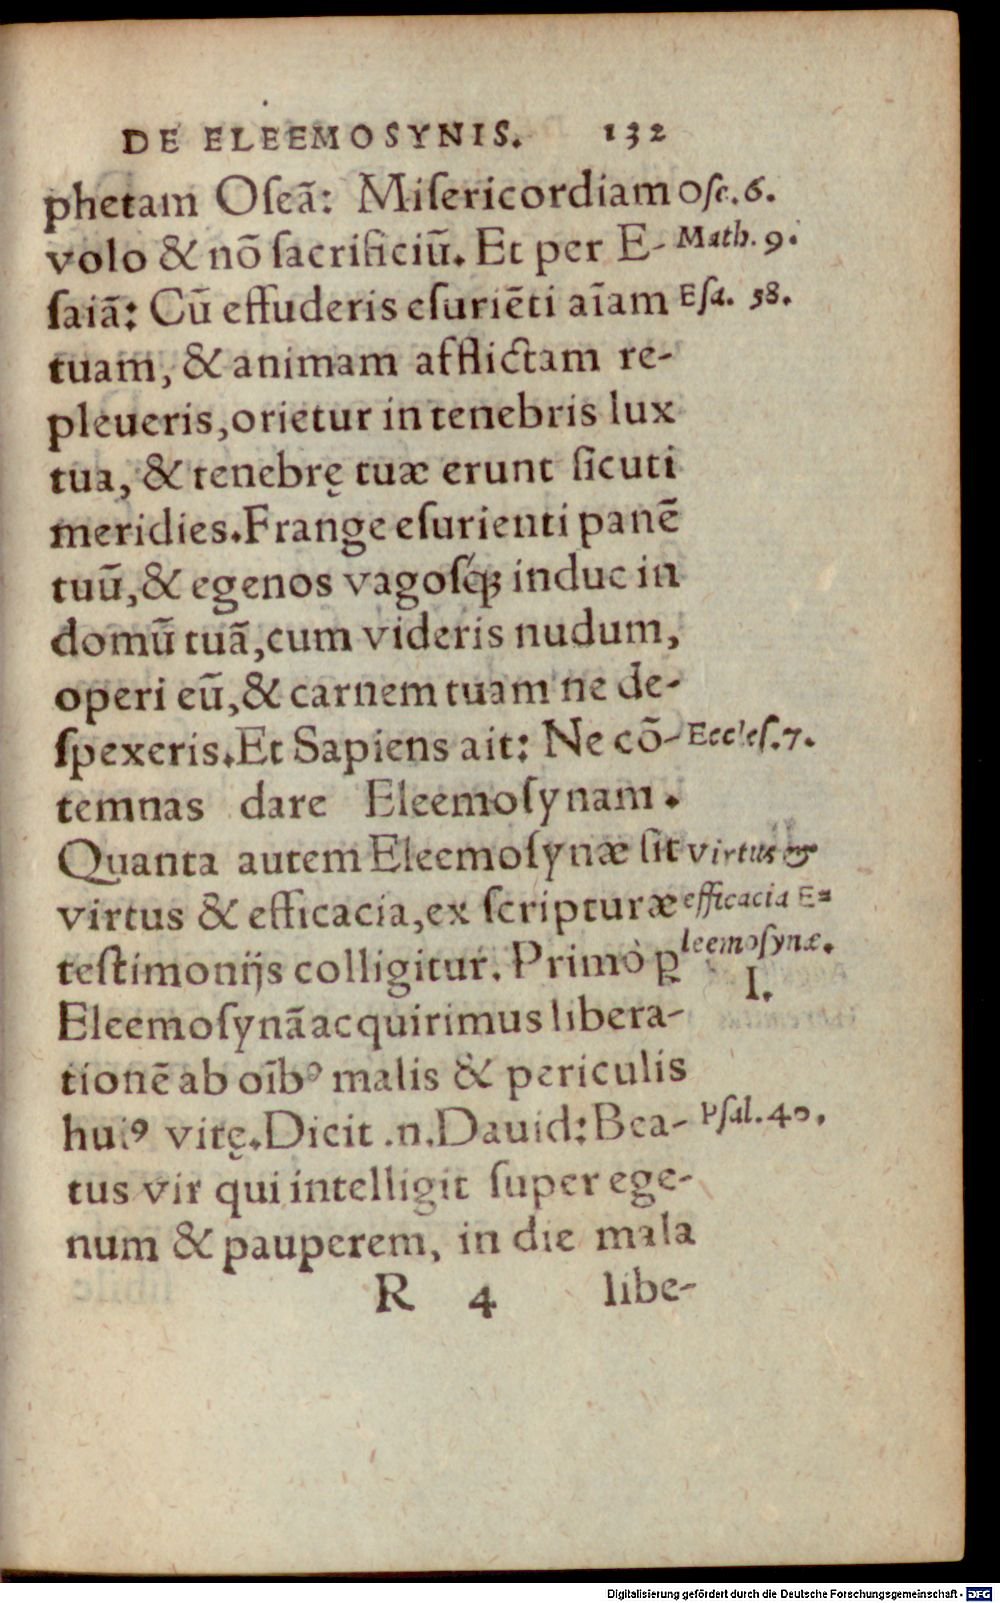 DE ELEEMOSYNIS. 132
phetam Oſeã: Miſericordiam Oſe. 6.
volo & nõ ſacrificiũ. Et per E- Math. 9.
ſaiã: Cũ effuderis eſuriẽti aĩam Eſa. 58.
tuam, & animam afflictam re-
pleueris, orietur in tenebris lux
tua, & tenebrę tuæ erunt ſicuti
meridies. Frange eſurienti panẽ
tuũ, & egenos vagoſq́ꝫ induc in
domũ tuã, cum videris nudum,
operi eũ, & carnem tuam ne de-
ſpexeris. Et Sapiens ait: Ne cõ- Eccleſ. 7.
temnas dare Eleemoſynam.
Quanta autem Eleemoſynæ ſit virtus &
virtus & efficacia, ex ſcripturæ efficacia E=
teſtimonijs colligitur. Primò ꝑ leemoſynæ.
I.
Eleemoſynã acquirimus libera-
tionẽ ab oĩbꝰ malis & periculis
huiꝰ vitę. Dicit .n. Dauid: Bea- Pſal. 40.
tus vir qui intelligit ſuper ege-
num & pauperem, in die mala
R 4 libe-
Digitalisierung gefördert durch die Deutsche Forschungsgemeinschaft - DFG